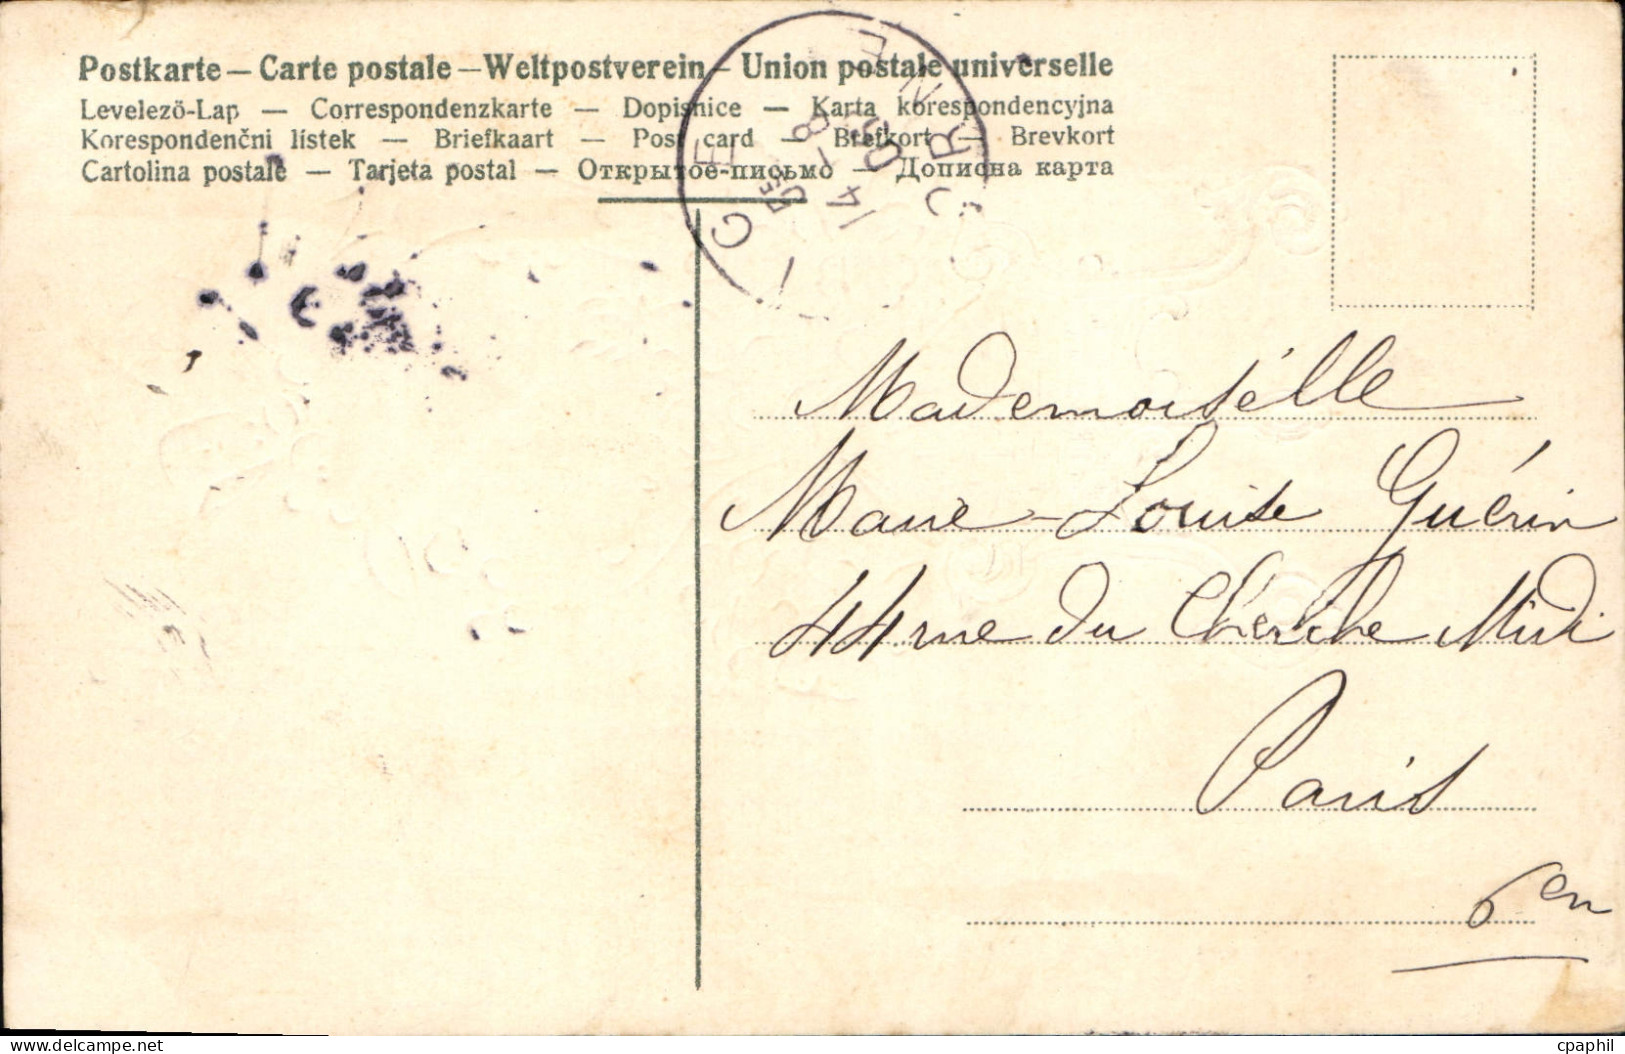 Postkarte — Carte postale — Weltpostverein — Union postale universelle
Levelezö-Lap — Correspondenzkarte — Dopisnice — Karta korespondencyjna
Korespondenčni lístek — Briefkaart — Post card — Brefkort — Brevkort
Cartolina postale — Tarjeta postal — Открытое-письмо — Дописна карта
Mademoiselle
Marie-Louise Guérin
44 rue du Cherche Midi
Paris
6en
cpaphil